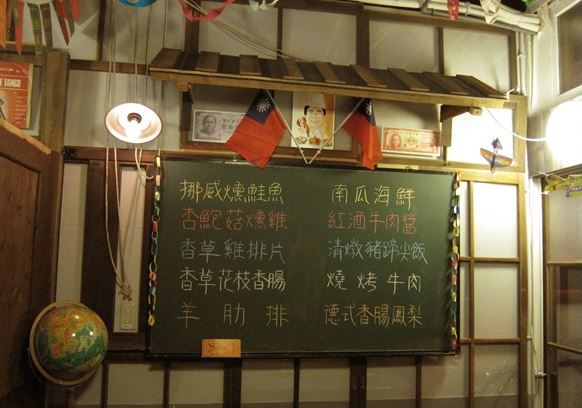 挪威燻鮭魚
杏鮑菇燻雞
香草雞排片
香草花枝香腸
羊肋排
南瓜海鮮
紅酒牛肉醬
清燉豬蹄尖飯
燒烤牛肉
德式香腸鳳梨